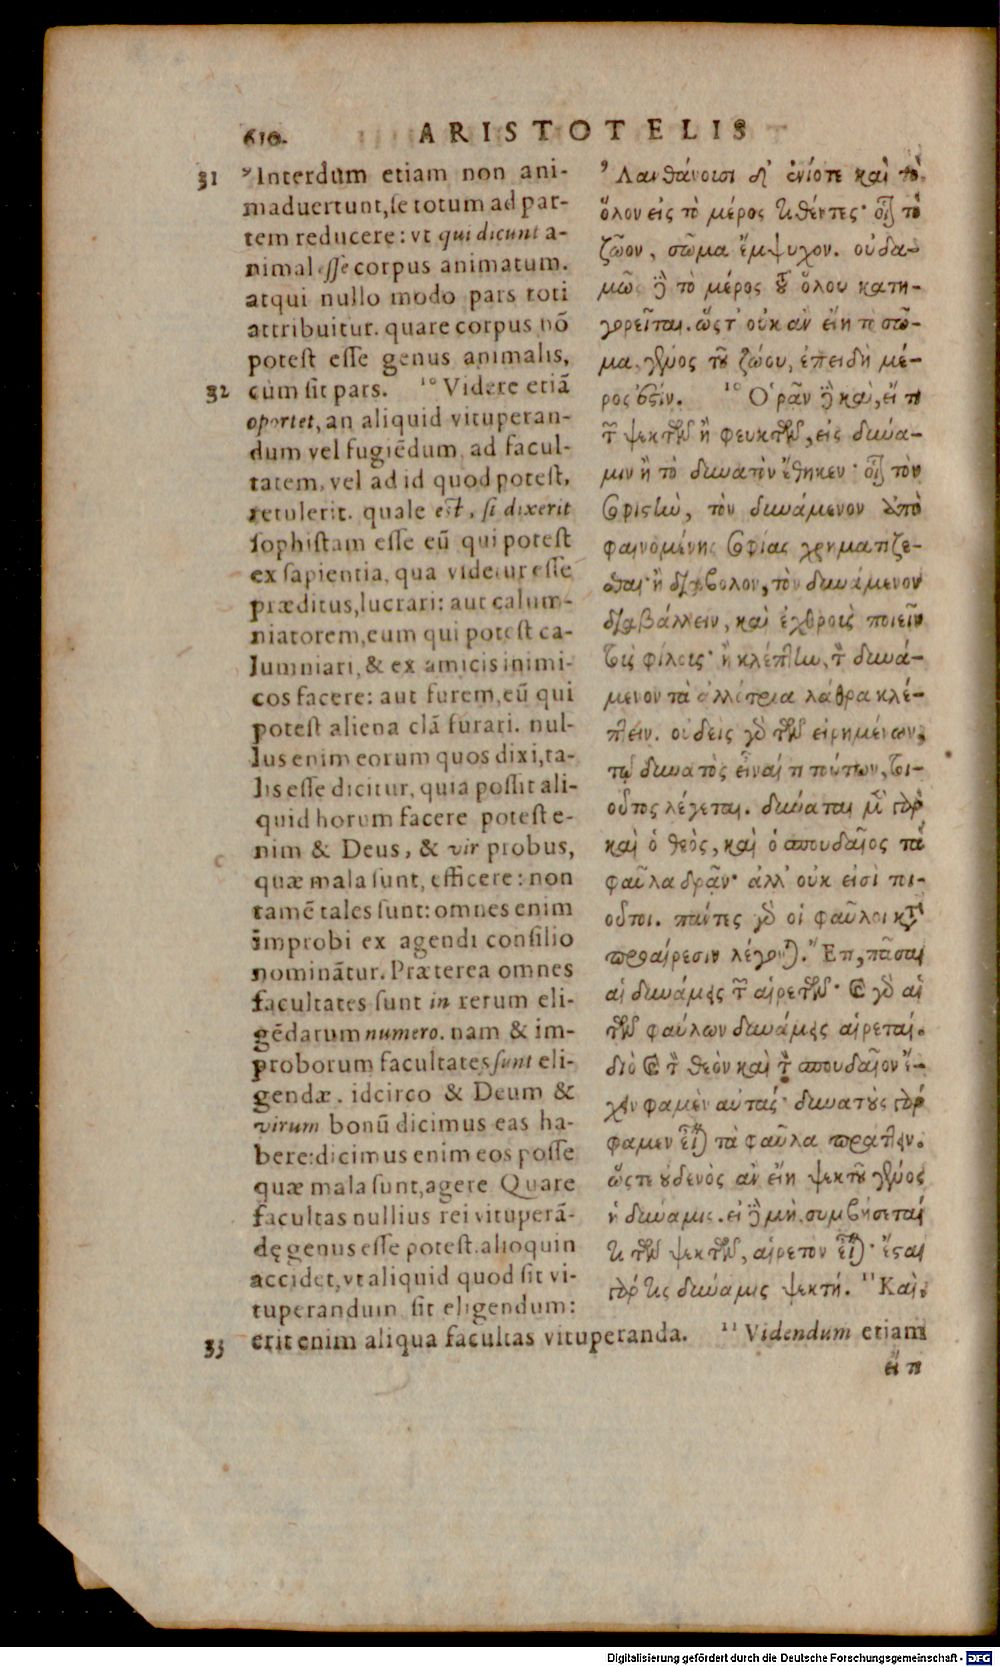 610. ARISTOTELIS
31 ⁹Interdum etiam non ani-
maduertunt, se totum ad par-
tem reducere: vt qui dicunt a-
nimal esse corpus animatum.
atqui nullo modo pars toti
attribuitur. quare corpus nō
potest esse genus animalis,
32 cùm sit pars. ¹⁰ Videre etiā
oportet, an aliquid vituperan-
dum vel fugiēdum, ad facul-
tatem, vel ad id quod potest,
retulerit. quale est, si dixerit
sophistam esse eū qui potest
ex sapientia, qua videtur esse
præditus, lucrari: aut calum-
niatorem, eum qui potest ca-
lumniari, & ex amicis inimi-
cos facere: aut furem, eū qui
potest aliena clā furari. nul-
lus enim eorum quos dixi, ta-
lis esse dicitur, quia possit ali-
quid horum facere potest e-
nim & Deus, & vir probus,
quæ mala sunt, efficere: non
tamē tales sunt: omnes enim
improbi ex agendi consilio
nominātur. Præterea omnes
facultates sunt in rerum eli-
gēdarum numero. nam & im-
proborum facultates sunt eli-
gendæ. idcirco & Deum &
virum bonū dicimus eas ha-
bere: dicimus enim eos posse
quæ mala sunt, agere Quare
facultas nullius rei vituperā-
dę genus esse potest. alioquin
accidet, vt aliquid quod sit vi-
tuperandum sit eligendum:
33 erit enim aliqua facultas vituperanda. ¹¹ Videndum etiam
⁹ Λανθάνουσι δ' ἐνίοτε καὶ τὸ
ὅλον εἰς τὸ μέρος τιθέντες· οἷον τὸ
ζῶον, σῶμα ἔμψυχον. οὐδα-
μῶς δὲ τὸ μέρος τοῦ ὅλου κατη-
γορεῖται. ὥστ' οὐκ ἂν εἴη τὸ σῶ-
μα γένος τοῦ ζώου, ἐπειδὴ μέ-
ρος ἐστίν. ¹⁰ Ὁρᾶν δὲ καὶ, εἴ τι
τῶν ψεκτῶν ἢ φευκτῶν, εἰς δύνα-
μιν ἢ τὸ δυνατὸν ἔθηκεν· οἷον τὸν
σοφιστὴν, τὸν δυνάμενον ἀπὸ
φαινομένης σοφίας χρηματίζε-
σθαι· ἢ διάβολον, τὸν δυνάμενον
διαβάλλειν, καὶ ἐχθροὺς ποιεῖν
τοὺς φίλους· ἢ κλέπτην, τὸν δυνά-
μενον τὰ ἀλλότρια λάθρα κλέ-
πτειν. οὐδεὶς γὰρ τῶν εἰρημένων,
τῷ δυνατὸς εἶναί τι τούτων, τοι-
οῦτος λέγεται. δύναται μὲν γὰρ
καὶ ὁ θεὸς, καὶ ὁ σπουδαῖος τὰ
φαῦλα δρᾶν· ἀλλ' οὐκ εἰσὶ τοι-
οῦτοι. πάντες γὰρ οἱ φαῦλοι κατὰ
προαίρεσιν λέγονται. Ἔτι, πᾶσαι
αἱ δυνάμεις τῶν αἱρετῶν· καὶ γὰρ αἱ
τῶν φαύλων δυνάμεις αἱρεταί.
διὸ καὶ τὸν θεὸν καὶ τὸν σπουδαῖον ἔ-
χειν φαμὲν αὐτάς· δυνατοὺς γάρ
φαμεν εἶναι τὰ φαῦλα πράττειν.
ὥστε οὐδενὸς ἂν εἴη ψεκτοῦ γένος
ἡ δύναμις. εἰ δὲ μὴ, συμβήσεται
τι τῶν ψεκτῶν, αἱρετὸν εἶναι· ἔσται
γάρ τις δύναμις ψεκτή. ¹¹ Καὶ,
εἴ τι
Digitalisierung gefördert durch die Deutsche Forschungsgemeinschaft - DFG